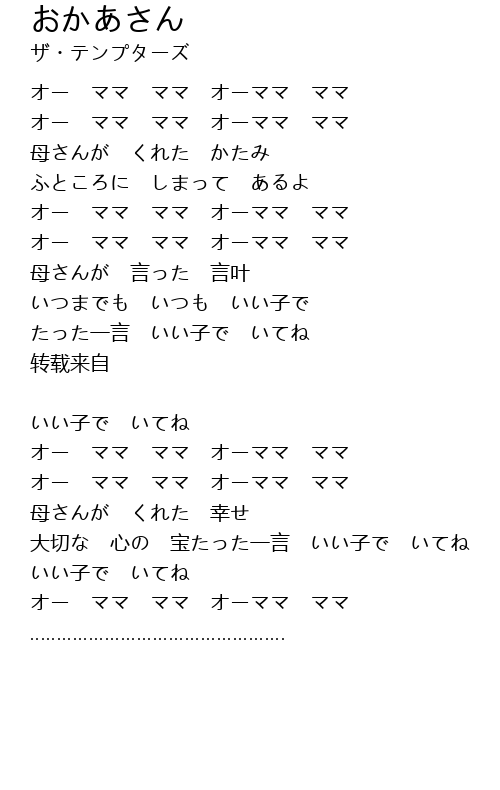 おかあさん
ザ・テンプターズ
オー　ママ　ママ　オーママ　ママ
オー　ママ　ママ　オーママ　ママ
母さんが　くれた　かたみ
ふところに　しまって　あるよ
オー　ママ　ママ　オーママ　ママ
オー　ママ　ママ　オーママ　ママ
母さんが　言った　言叶
いつまでも　いつも　いい子で
たった一言　いい子で　いてね
转载来自
いい子で　いてね
オー　ママ　ママ　オーママ　ママ
オー　ママ　ママ　オーママ　ママ
母さんが　くれた　幸せ
大切な　心の　宝たった一言　いい子で　いてね
いい子で　いてね
オー　ママ　ママ　オーママ　ママ
................................................